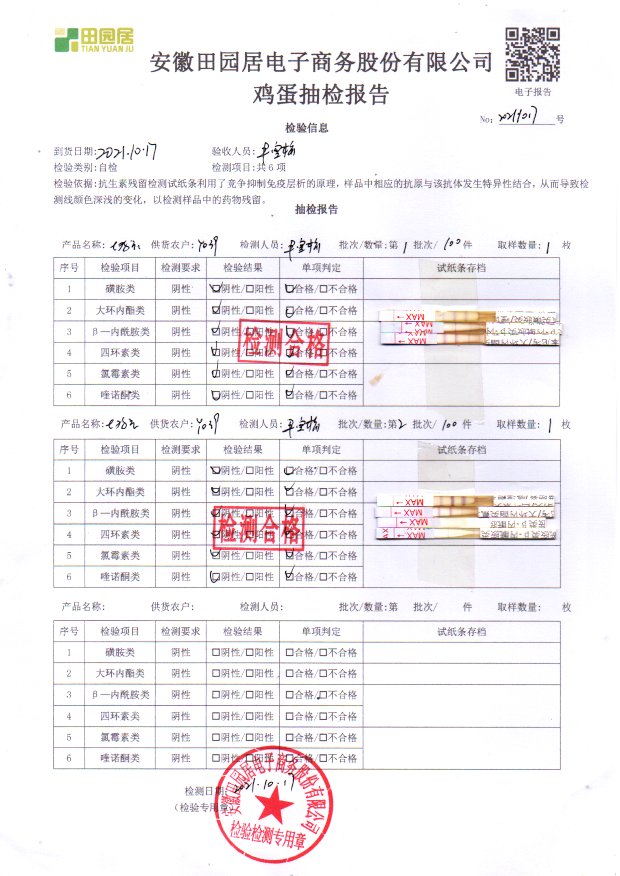 田园居
TIAN YUAN JU
安徽田园居电子商务股份有限公司
鸡蛋抽检报告
电子报告
No: 号
检验信息
到货日期:2021.10.17 验收人员:
检验类别:自检 检测项目:共6项
检验依据:抗生素残留检测试纸条利用了竞争抑制免疫层析的原理，样品中相应的抗原与该抗体发生特异性结合，从而导致检
测线颜色深浅的变化，以检测样品中的药物残留。
抽检报告
产品名称: 供货农户: 检测人员: 批次/数量:第1批次/100件 取样数量:1枚
序号 检验项目 检测要求 检验结果 单项判定 试纸条存档
1 磺胺类 阴性 ☑阴性/□阳性 ☑合格/□不合格
2 大环内酯类 阴性 ☑阴性/□阳性 ☑合格/□不合格
3 β—内酰胺类 阴性 ☑阴性/□阳性 ☑合格/□不合格
4 四环素类 阴性 ☑阴性/□阳性 ☑合格/□不合格
5 氯霉素类 阴性 ☑阴性/□阳性 ☑合格/□不合格
6 喹诺酮类 阴性 ☑阴性/□阳性 ☑合格/□不合格
检测合格
MAX
MAX
MAX
产品名称: 供货农户: 检测人员: 批次/数量:第2批次/100件 取样数量:1枚
序号 检验项目 检测要求 检验结果 单项判定 试纸条存档
1 磺胺类 阴性 ☑阴性/□阳性 ☑合格/□不合格
2 大环内酯类 阴性 ☑阴性/□阳性 ☑合格/□不合格
3 β—内酰胺类 阴性 ☑阴性/□阳性 ☑合格/□不合格
4 四环素类 阴性 ☑阴性/□阳性 ☑合格/□不合格
5 氯霉素类 阴性 ☑阴性/□阳性 ☑合格/□不合格
6 喹诺酮类 阴性 ☑阴性/□阳性 ☑合格/□不合格
检测合格
MAX
MAX
MAX
产品名称: 供货农户: 检测人员: 批次/数量:第 批次/ 件 取样数量: 枚
序号 检验项目 检测要求 检验结果 单项判定 试纸条存档
1 磺胺类 阴性 □阴性/□阳性 □合格/□不合格
2 大环内酯类 阴性 □阴性/□阳性 □合格/□不合格
3 β—内酰胺类 阴性 □阴性/□阳性 □合格/□不合格
4 四环素类 阴性 □阴性/□阳性 □合格/□不合格
5 氯霉素类 阴性 □阴性/□阳性 □合格/□不合格
6 喹诺酮类 阴性 □阴性/□阳性 □合格/□不合格
检测日期:2021.10.17
(检验专用章)
安徽田园居电子商务股份有限公司
检验检测专用章